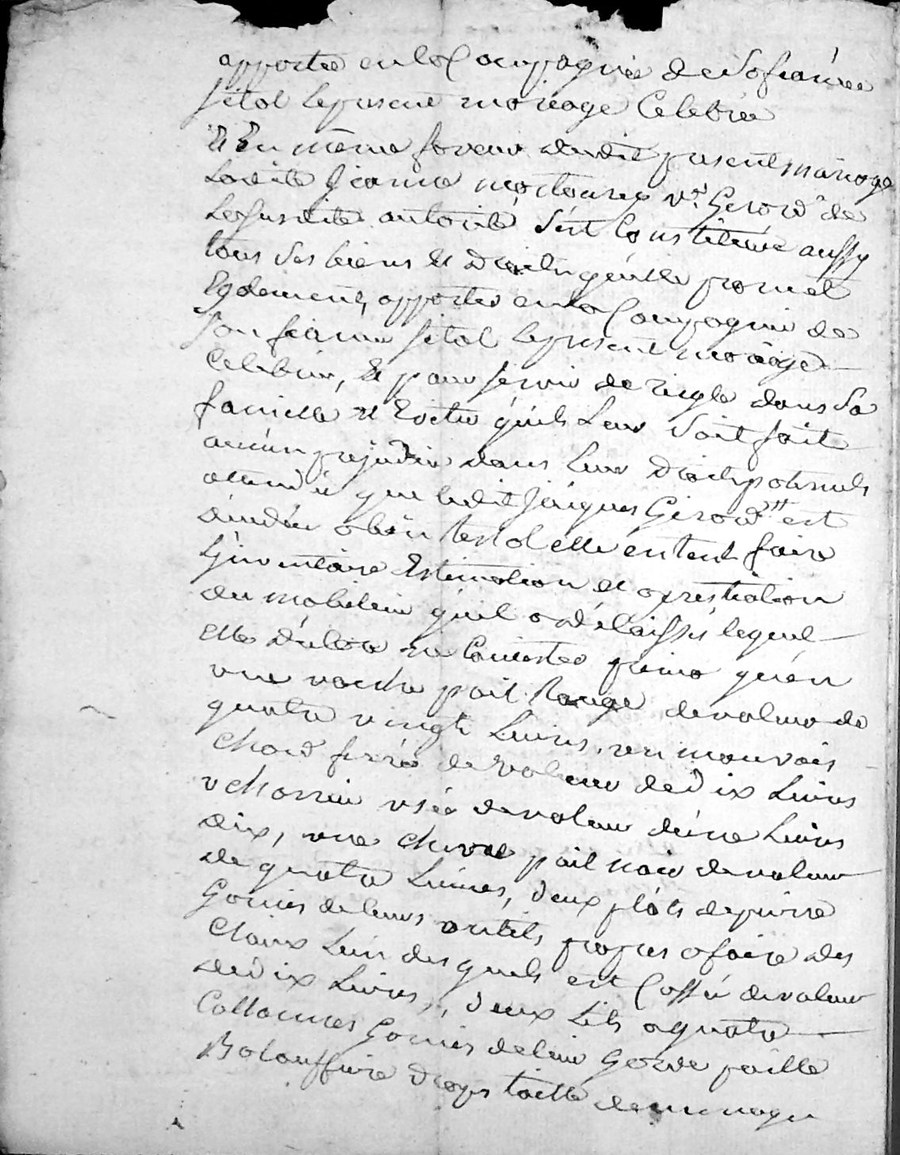 apporter en la Compagnie de Sa fiancée
sitot le present mariage Celebrée
Et En même faveur dudit present mariage
Ladite Jeanne v.e Gerard de
Lesusdite autorité s'est Constituée aussy
tous Ses biens Et Droits qu'elle promet
Egalement, apporter en la Compagnie de
Son fiancé sitot le present mariage
Celebrée, Et pour servir de regle dans Sa
famille et Eviter qu'ils Leur Soit fait
aucun prejudice dans Leurs Droits paternels
attendu que ledit Jacques Gerard est
decedée ab intestat elle entend faire
L'inventaire Estimation et apretiation
du mobilein qu'il a délaissés lequel
elle déclare ne Consister primo qu'en
une vache poil Rouge de valeur de
quatre vingt Livres, un mauvais
Chard ferré de valeur de Dix Livres
usée de valeur d'une Livres
dix, une chevre poil noir de valeur
de quatre Livres, deux plots de pierre
Garnies de leurs outils propres a faire des
Claux Lun des quels est Cassée de valeur
de Dix Livres, deux Lits a quatre
Collonnes Garnies de leur Garde paille
Balouffiere draps toille de menage